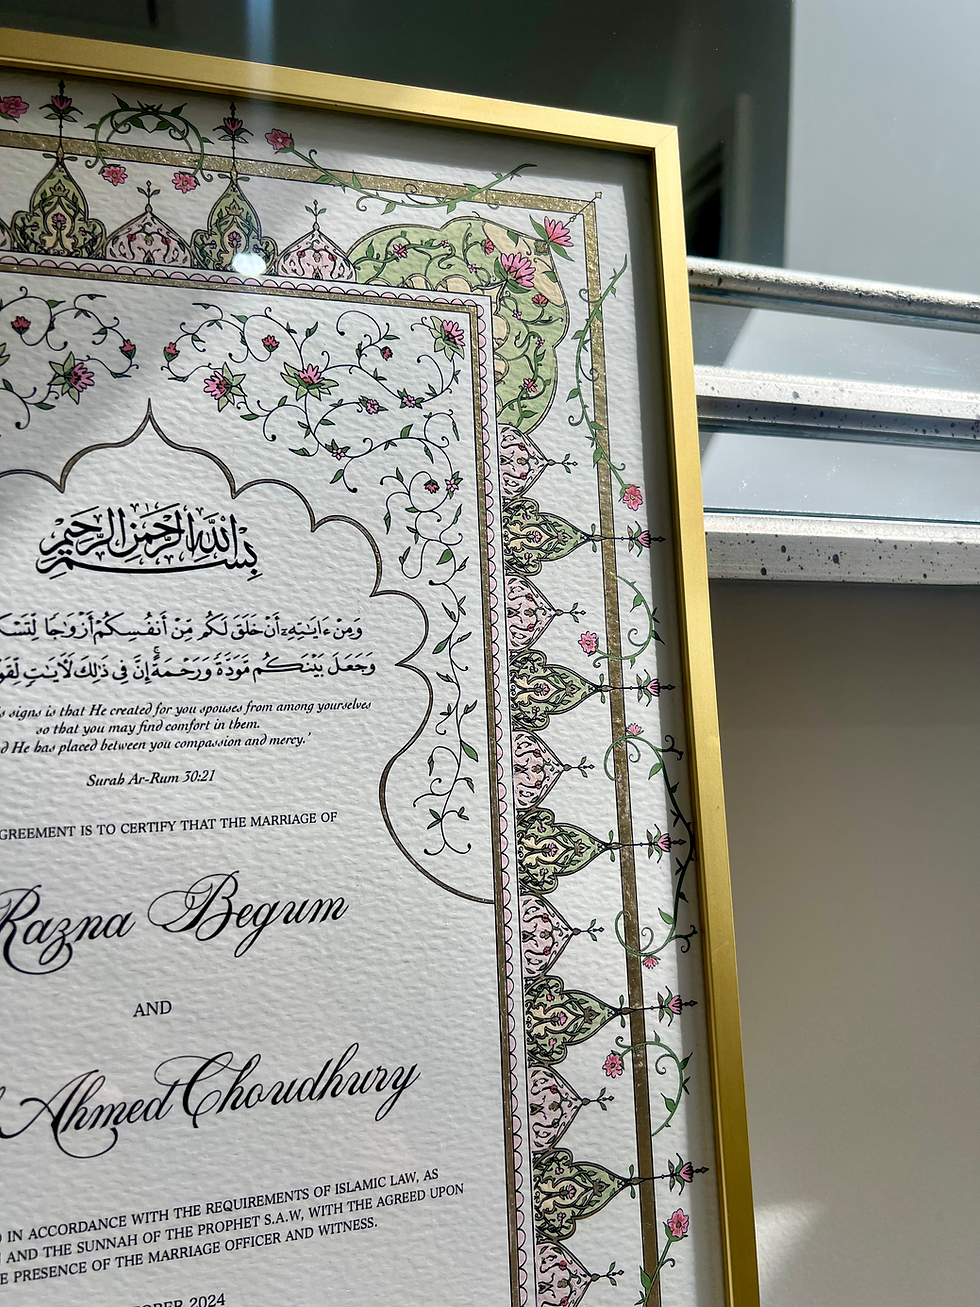 بِسْمِ اللَّهِ الرَّحْمَنِ الرَّحِيمِ
وَمِنْ ءَايَٰتِهِۦٓ أَنْ خَلَقَ لَكُم مِّنْ أَنفُسِكُمْ أَزْوَٰجًا
وَجَعَلَ بَيْنَكُم مَّوَدَّةً وَرَحْمَةً ۚ إِنَّ فِى ذَٰلِكَ لَءَايَٰتٍ
signs is that He created for you spouses from among yourselves
so that you may find comfort in them.
He has placed between you compassion and mercy.'
Surah Ar-Rum 30:21
GREEMENT IS TO CERTIFY THAT THE MARRIAGE OF
Razna Begum
AND
Ahmed Choudhury
IN ACCORDANCE WITH THE REQUIREMENTS OF ISLAMIC LAW, AS
AND THE SUNNAH OF THE PROPHET S.A.W, WITH THE AGREED UPON
PRESENCE OF THE MARRIAGE OFFICER AND WITNESS.
OBER 2024